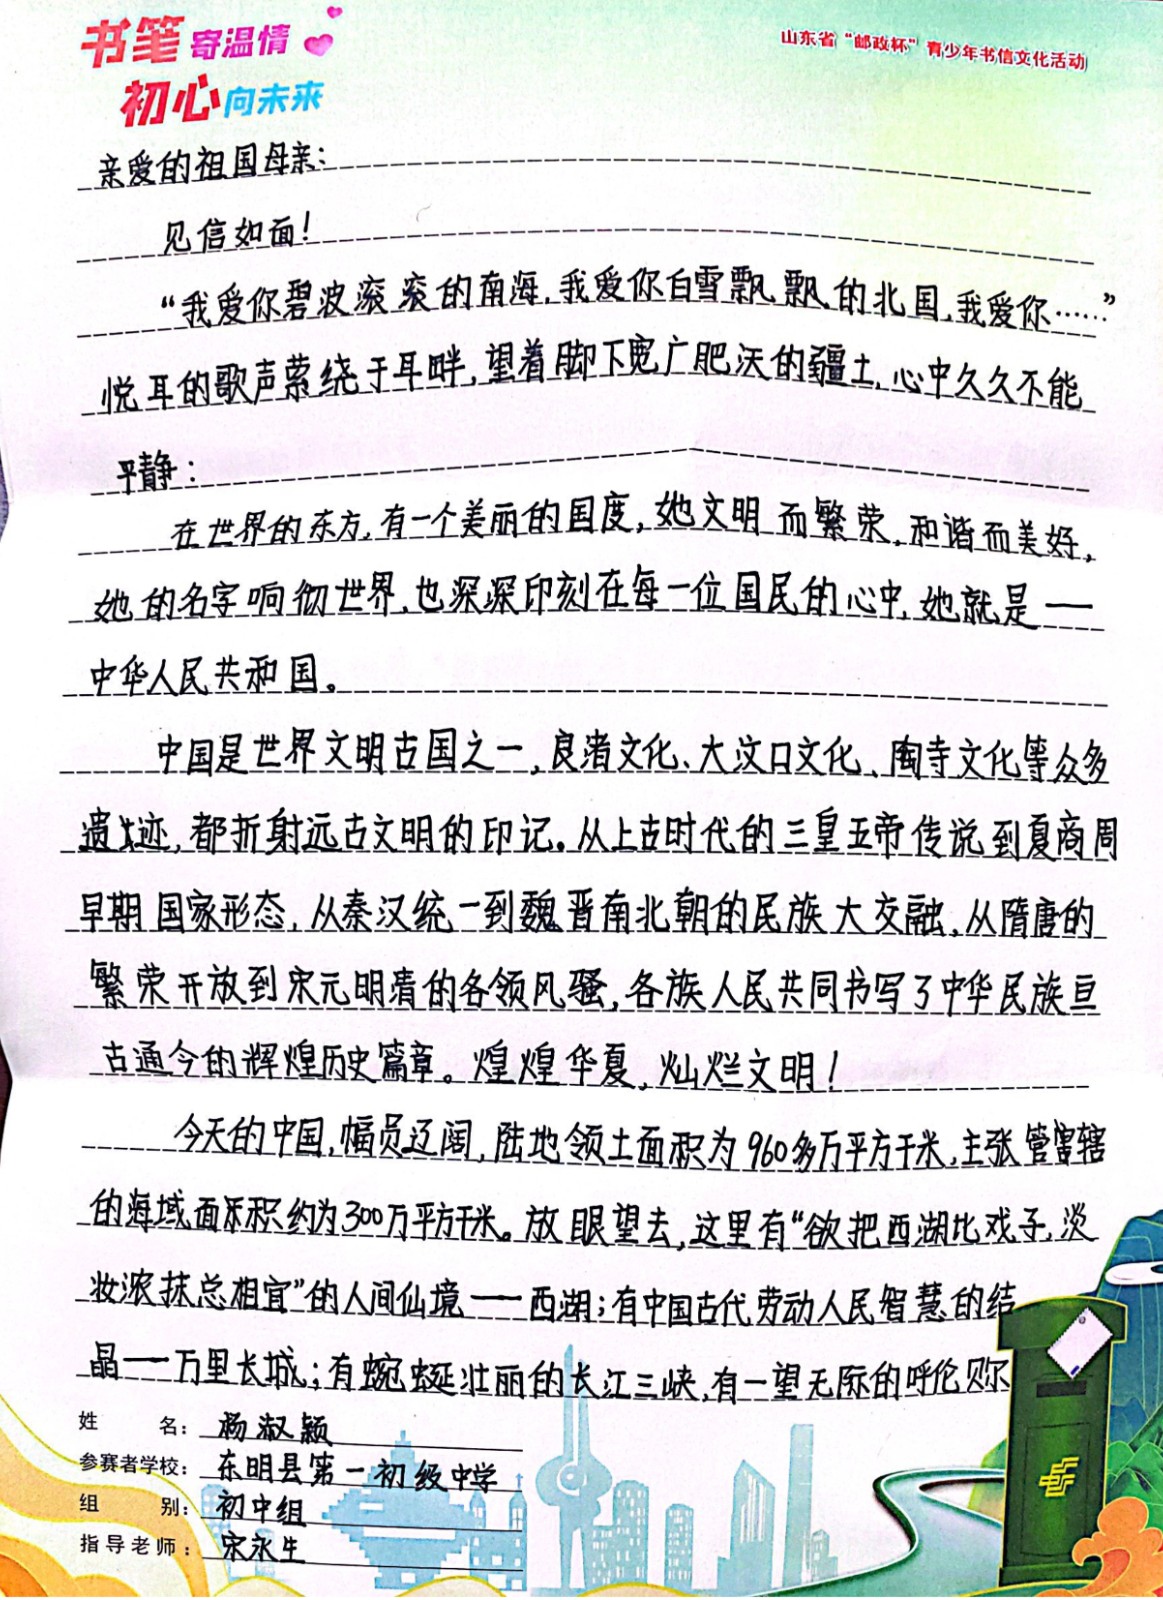 书笔寄温情
初心向未来
山东省“邮政杯”青少年书信文化活动
亲爱的祖国母亲：
见信如面！
“我爱你碧波滚滚的南海，我爱你白雪飘飘的北国，我爱你……”
悦耳的歌声萦绕于耳畔，望着脚下宽广肥沃的疆土，心中久久不能
平静：
在世界的东方，有一个美丽的国度，她文明而繁荣，和谐而美好，
她的名字响彻世界，也深深印刻在每一位国民的心中，她就是——
中华人民共和国。
中国是世界文明古国之一，良渚文化、大汶口文化、陶寺文化等众多
遗迹，都折射远古文明的印记。从上古时代的三皇五帝传说到夏商周
早期国家形态，从秦汉统一到魏晋南北朝的民族大交融，从隋唐的
繁荣开放到宋元明清的各领风骚，各族人民共同书写了中华民族亘
古通今的辉煌历史篇章。煌煌华夏，灿烂文明！
今天的中国，幅员辽阔，陆地领土面积为960多万平方千米，主张管辖
的海域面积约为300万平方千米。放眼望去，这里有“欲把西湖比戏子，淡
妆浓抹总相宜”的人间仙境——西湖；有中国古代劳动人民智慧的结
晶——万里长城；有蜿蜒壮丽的长江三峡，有一望无际的呼伦贝尔
姓名：杨淑颖
参赛者学校：东明县第一初级中学
组别：初中组
指导老师：宋永生